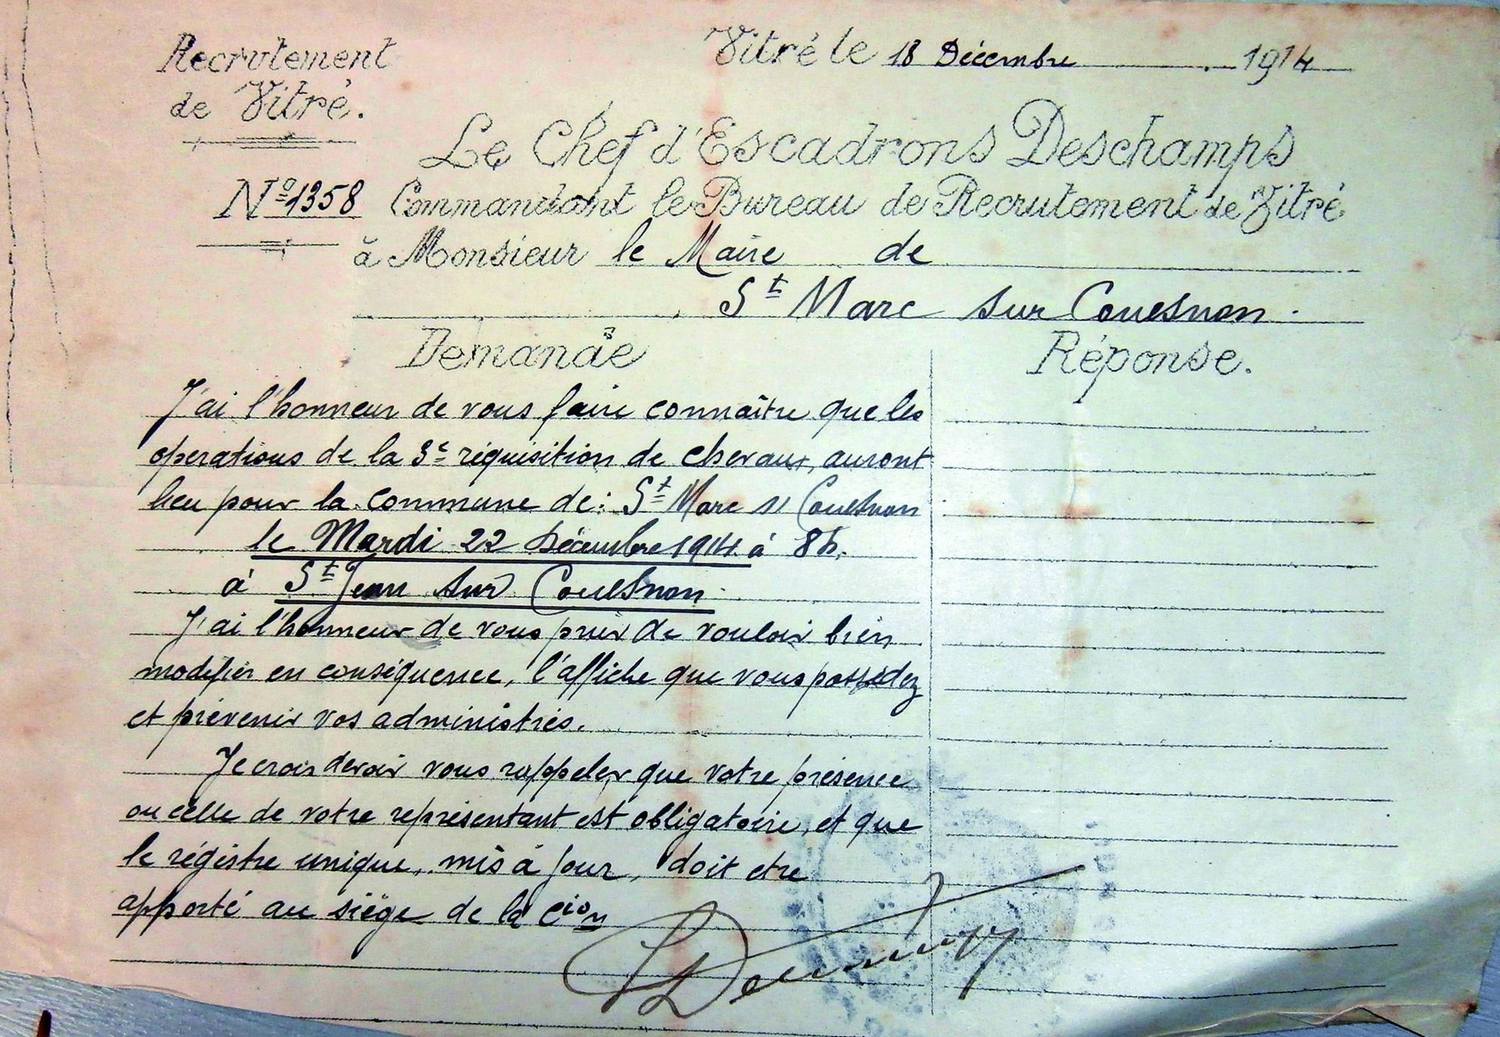 Recrutement
de Vitré.
Vitré le 18 Décembre 1914
Le Chef d'Escadrons Deschamps
N° 1358
Commandant le Bureau de Recrutement de Vitré
à Monsieur le Maire de
St Marc sur Couesnon.
Demande
Réponse.
J'ai l'honneur de vous faire connaître que les
opérations de la 3e réquisition de chevaux, auront
lieu pour la commune de: St Marc s/ Couesnon
le Mardi 22 Décembre 1914 à 8h.
à St Jean sur Couesnon.
J'ai l'honneur de vous prier de vouloir bien
modifier en conséquence, l'affiche que vous possédez
et prévenir vos administrés.
Je crois devoir vous rappeler que votre présence
ou celle de votre représentant est obligatoire, et que
le régistre unique, mis à jour, doit etre
apporté au siège de la Cion